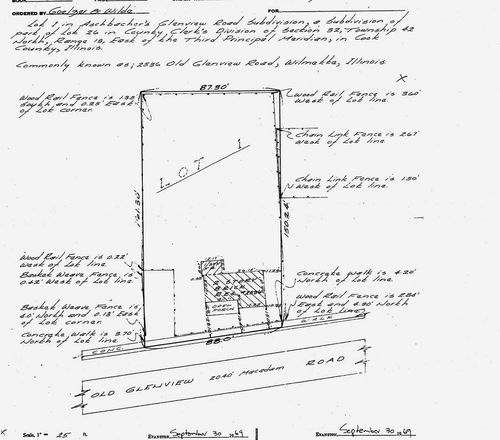 ORDERED BY: Goelzer & Wilde FOR:
Lot 1 in Aschbacher's Glenview Road Subdivision, a Subdivision of
part of Lot 26 in County Clerk's Division of Section 32, Township 42
North, Range 13, East of the Third Principal Meridian, in Cook
County, Illinois.
Commonly known as: 2536 Old Glenview Road, Wilmette, Illinois
X
87.90'
Wood Rail Fence is
South and 0.25' East
of Lot corner.
Wood Rail Fence is 3.60'
West of Lot line.
Chain Link Fence is 2.67'
West of Lot line.
LOT 1
Chain Link Fence is 1.50'
West of Lot line.
150.24'
Wood Rail Fence is 0.22'
West of Lot line.
Basket Weave Fence is
0.62' West of Lot line.
Concrete walk is 4.20'
North of Lot line.
OPEN
PORCH
Basket Weave Fence is
North and 0.13' East
of Lot corner.
Wood Rail Fence is
East and 4.80' North
of Lot line.
Concrete Walk is 3.70'
North of Lot line.
CONC.
88.0'
WALK
OLD GLENVIEW 20.40' Macadam ROAD
X Scale, 1" = 25 ft. EVANSTON, September 30 1969 EVANSTON, September 30 1969